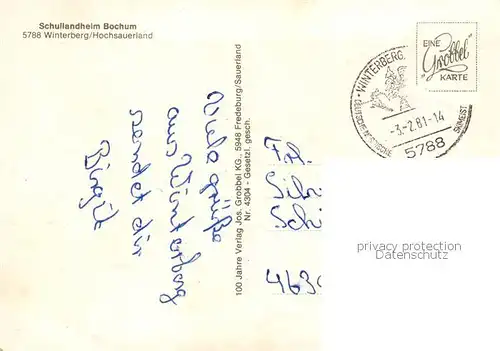 Schullandheim Bochum
5788 Winterberg/Hochsauerland
EINE
"Grobbel"
KARTE
WINTERBERG
-3.-2.81-14
5788
Viele Grüße
aus Winterberg
sendet dir
Birgit
100 Jahre Verlag Jos. Grobbel KG., 5948 Fredeburg/Sauerland
Nr. 4304 - Gesetzl. gesch.
Frl.
Sil
Sch
463
privacy protection
Datenschutz